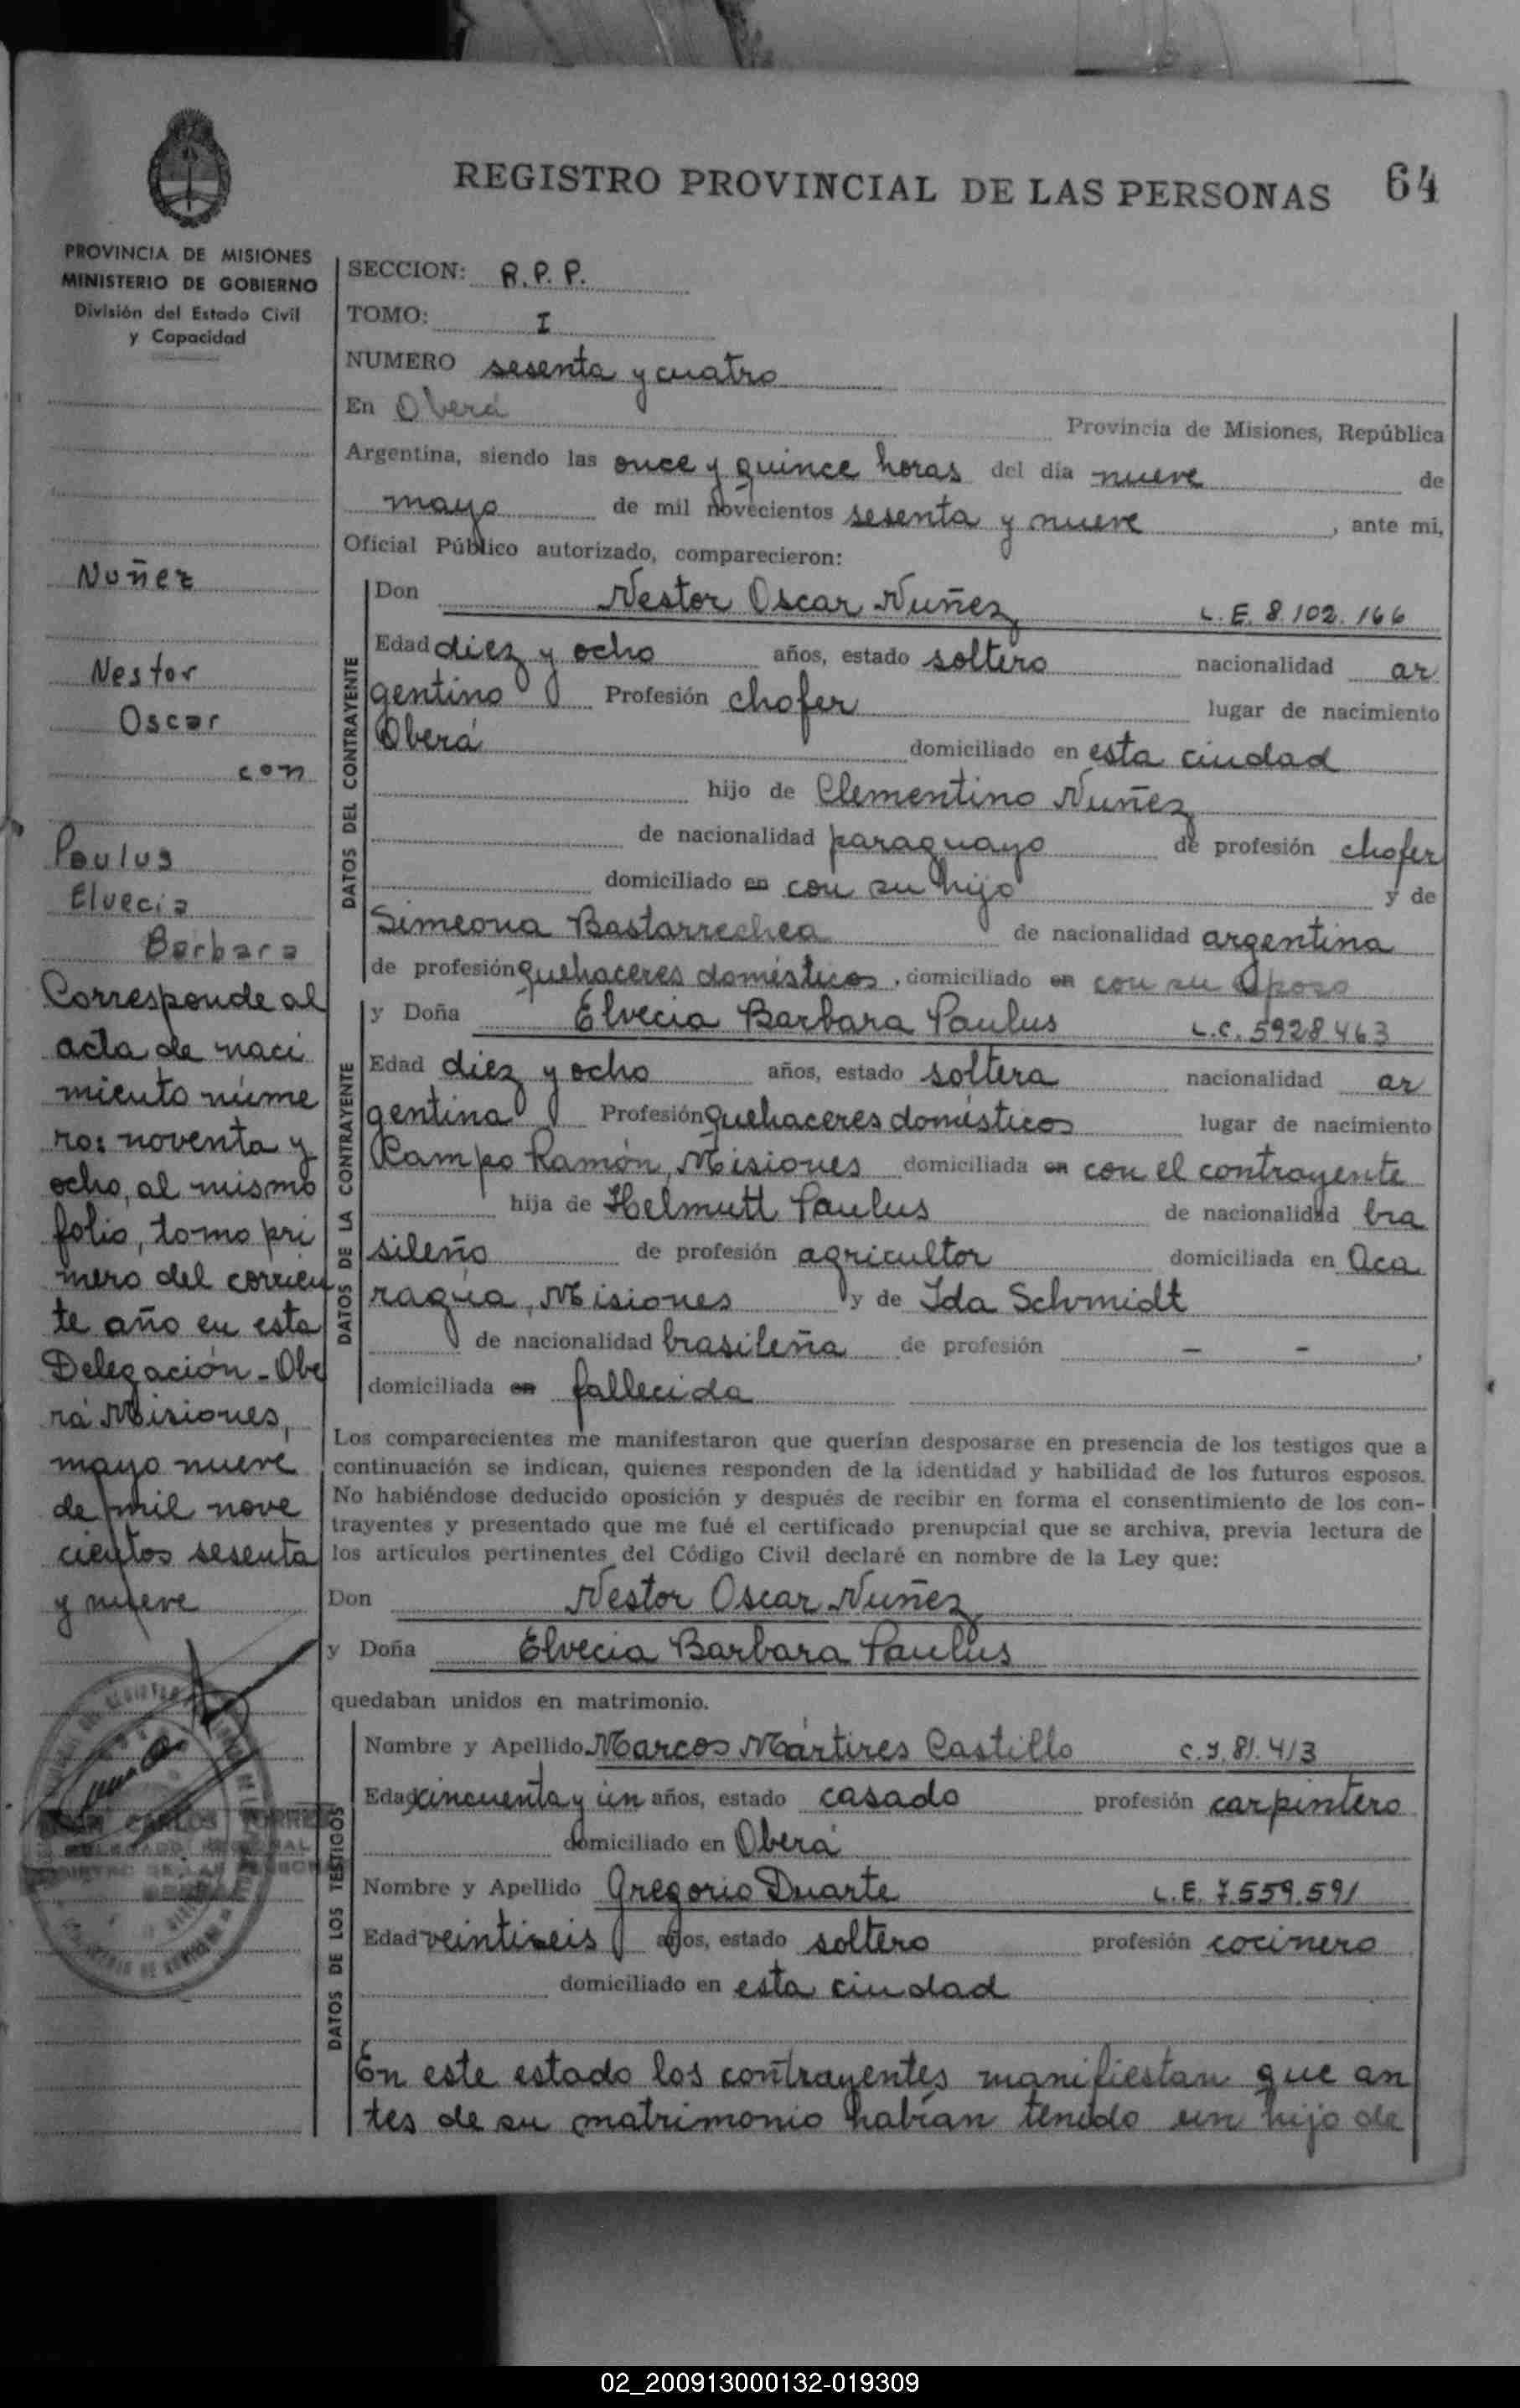 REGISTRO PROVINCIAL DE LAS PERSONAS 64
PROVINCIA DE MISIONES
MINISTERIO DE GOBIERNO
División del Estado Civil
y Capacidad
SECCION: R.P.P.
TOMO: I
NUMERO sesenta y cuatro
En Oberá Provincia de Misiones, República
Argentina, siendo las once y quince horas del día nueve de
mayo de mil novecientos sesenta y nueve, ante mi,
Oficial Público autorizado, comparecieron:
Nuñez
Nestor
Oscar
con
Paulus
Elvecia
Barbara
Corresponde al
acta de naci
miento núme
ro: noventa y
ocho, al mismo
folio, tomo pri
mero del corrien
te año en esta
Delegación - Obe
rá Misiones,
mayo nueve
de mil nove
cientos sesenta
y nueve
DATOS DEL CONTRAYENTE
Don Nestor Oscar Nuñez L.E. 8.102.166
Edad diez y ocho años, estado soltero nacionalidad ar
gentino Profesión chofer lugar de nacimiento
Oberá domiciliado en esta ciudad
hijo de Clementino Nuñez
de nacionalidad paraguayo de profesión chofer
domiciliado en con su hijo y de
Simeona Bastarrechea de nacionalidad argentina
de profesión quehaceres domésticos, domiciliado en con su esposo
DATOS DE LA CONTRAYENTE
y Doña Elvecia Barbara Paulus L.C. 5928463
Edad diez y ocho años, estado soltera nacionalidad ar
gentina Profesión quehaceres domésticos lugar de nacimiento
Campo Ramón, Misiones domiciliada en con el contrayente
hija de Helmutt Paulus de nacionalidad bra
sileño de profesión agricultor domiciliada en Aca
ragua, Misiones y de Ida Schmidt
de nacionalidad brasileña de profesión - - ,
domiciliada en fallecida
Los comparecientes me manifestaron que querían desposarse en presencia de los testigos que a
continuación se indican, quienes responden de la identidad y habilidad de los futuros esposos.
No habiéndose deducido oposición y después de recibir en forma el consentimiento de los con-
trayentes y presentado que me fué el certificado prenupcial que se archiva, previa lectura de
los artículos pertinentes del Código Civil declaré en nombre de la Ley que:
Don Nestor Oscar Nuñez
y Doña Elvecia Barbara Paulus
quedaban unidos en matrimonio.
DATOS DE LOS TESTIGOS
Nombre y Apellido Marcos Mártires Castillo C.I. 81.413
Edad cincuenta y un años, estado casado profesión carpintero
domiciliado en Oberá
Nombre y Apellido Gregorio Duarte L.E. 7.559.591
Edad veintiseis años, estado soltero profesión cocinero
domiciliado en esta ciudad
En este estado los contrayentes manifiestan que an
tes de su matrimonio habían tenido un hijo de
CARLOS TORRES
02_200913000132-019309